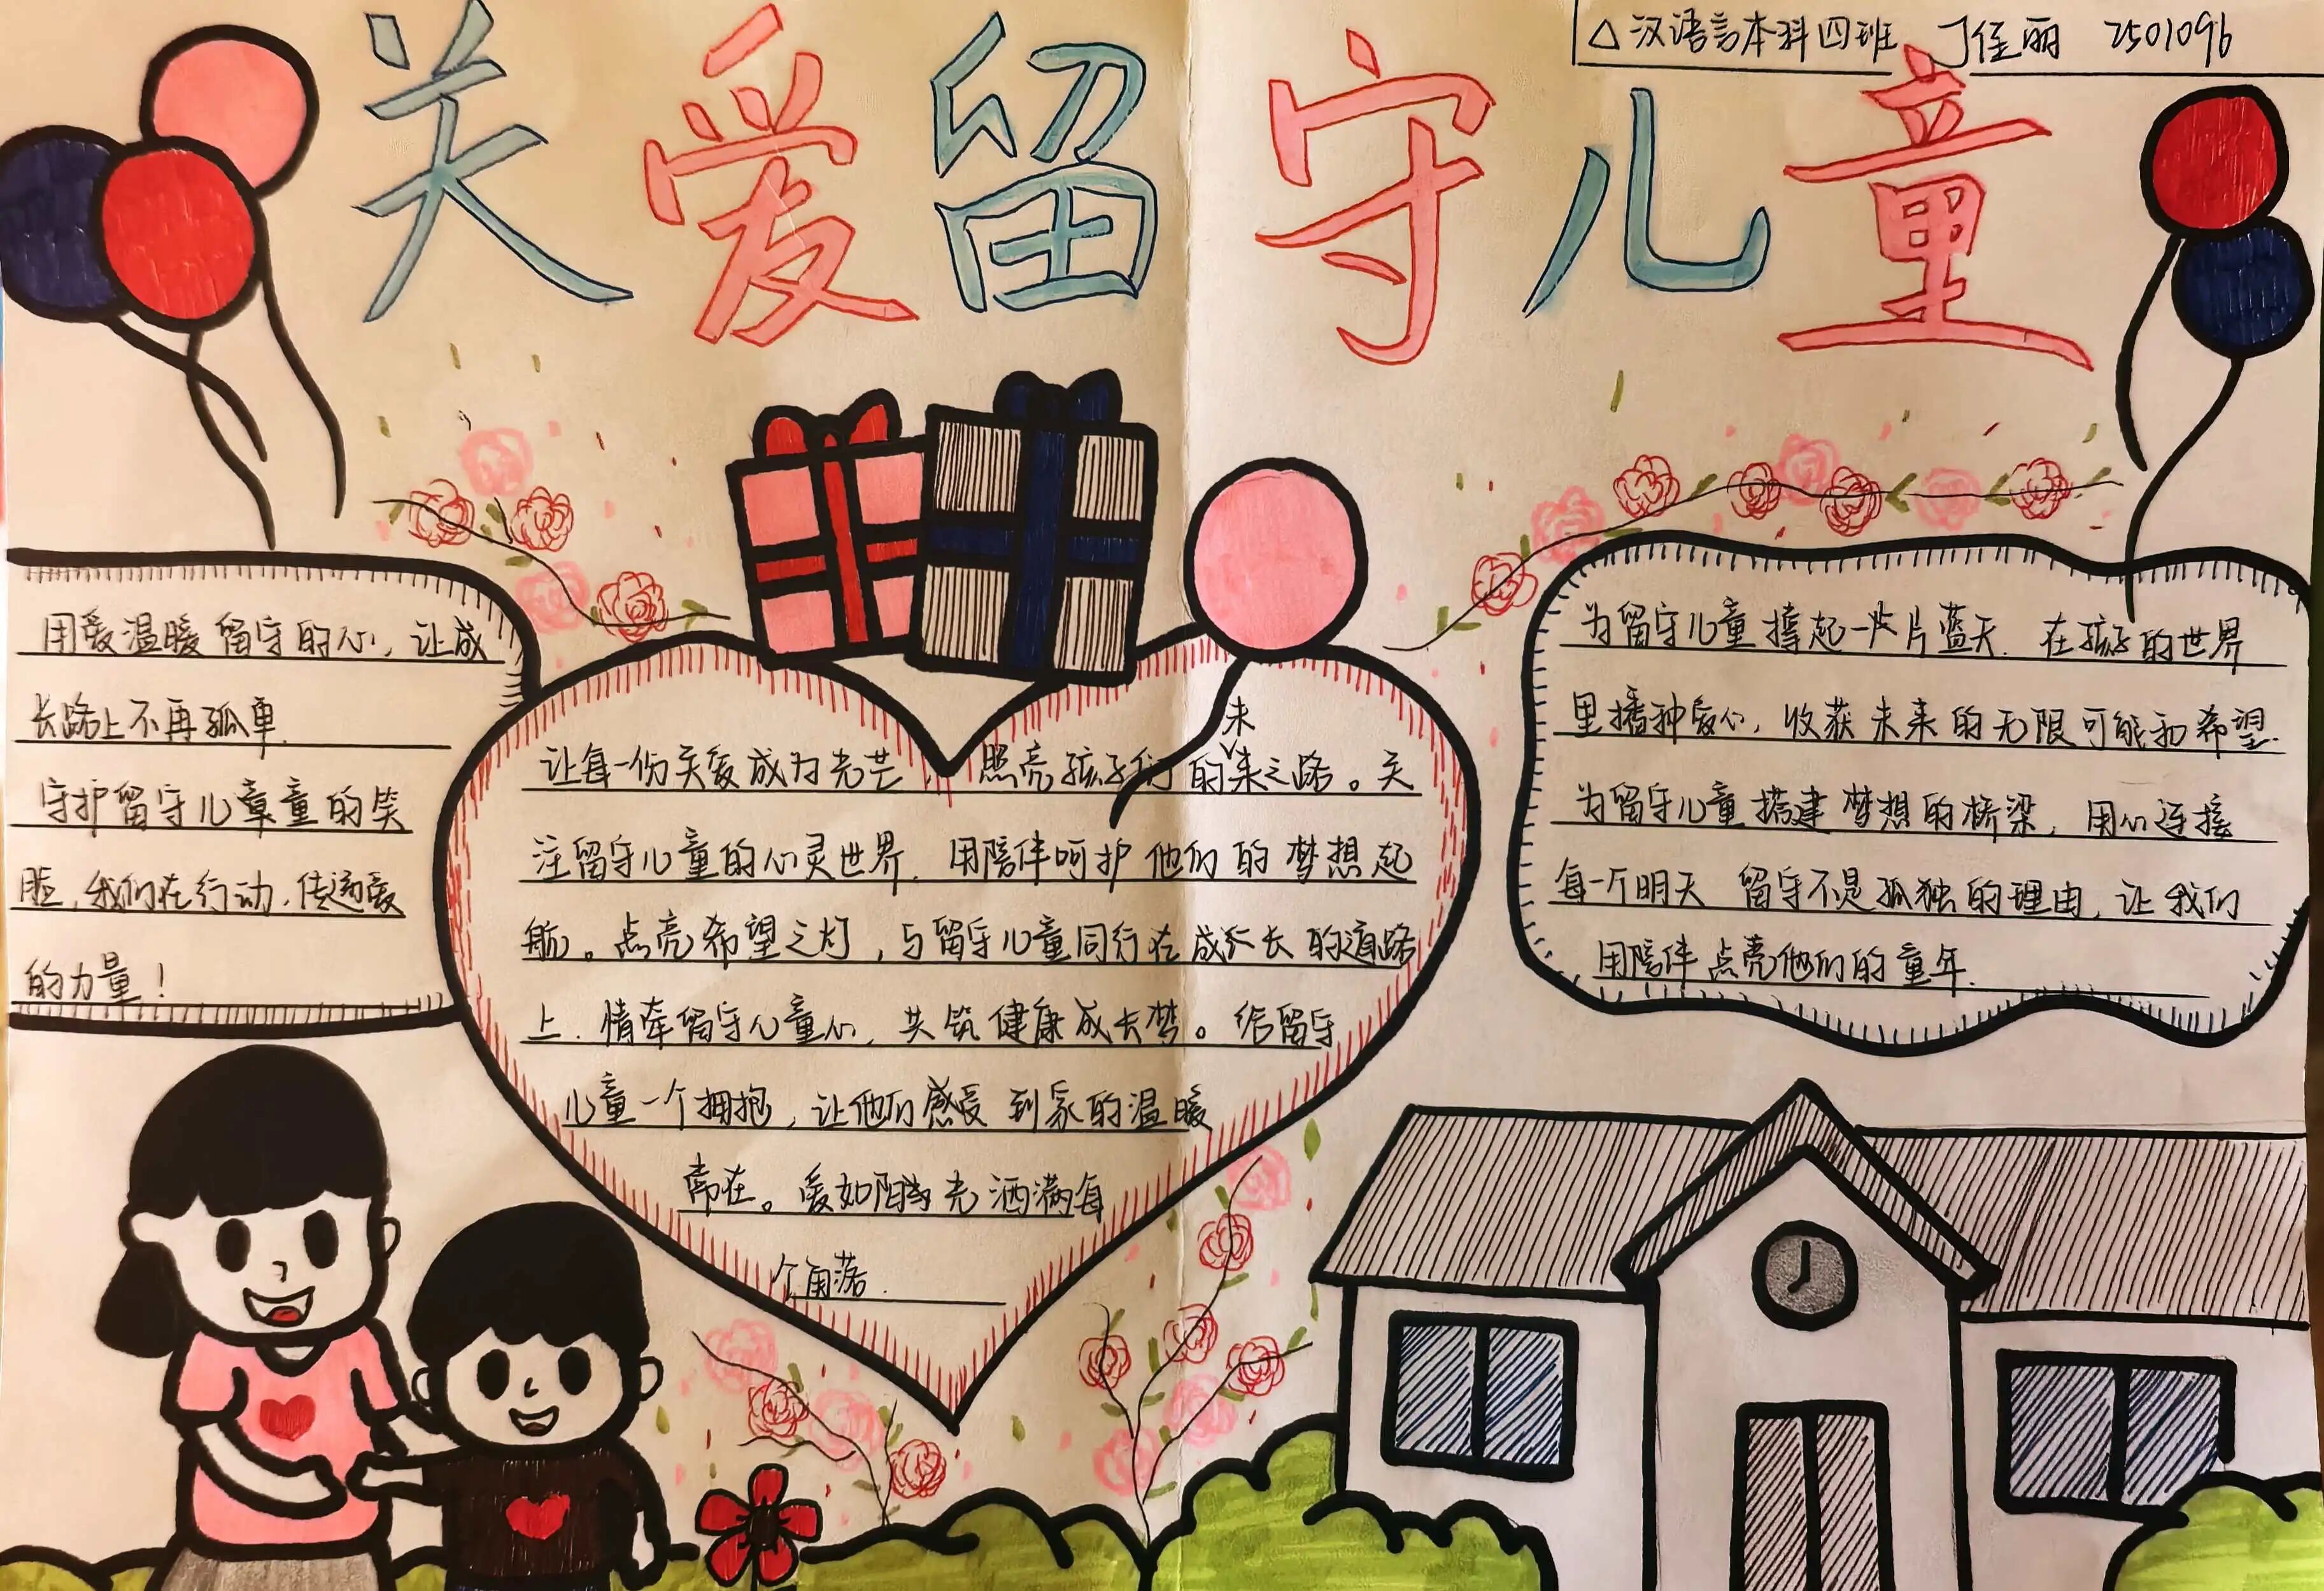 汉语言本科四班 丁侄丽 2501096
关爱留守儿童
用爱温暖留守的心,让成
长路上不再孤单.
守护留守儿童的笑
脸,我们在行动,传递爱
的力量!
让每一份关爱成为光芒,照亮孩子们的未来之路。关
注留守儿童的心灵世界.用陪伴呵护他们的梦想起
航。点亮希望之灯,与留守儿童同行在成长的道路
上.情牵留守儿童心,共筑健康成长梦。给留守
儿童一个拥抱,让他们感受到家的温暖
常在。爱如阳光洒满每
个角落.
为留守儿童撑起一片蓝天.在孩子的世界
里播种爱心,收获未来的无限可能和希望.
为留守儿童搭建梦想的桥梁,用心连接
每一个明天 留守不是孤独的理由,让我们
用陪伴点亮他们的童年.